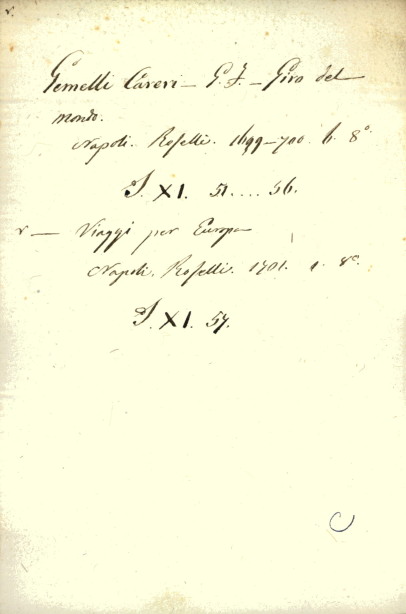 v.
Gemelli Careri — G. F. — Giro del
mondo.
Napoli. Roselli. 1699–700. 6. 8°.
S. XI. 51.... 56.
v — Viaggi per Europa
Napoli. Roselli. 1701. 1. 8°.
S. XI. 57.
C